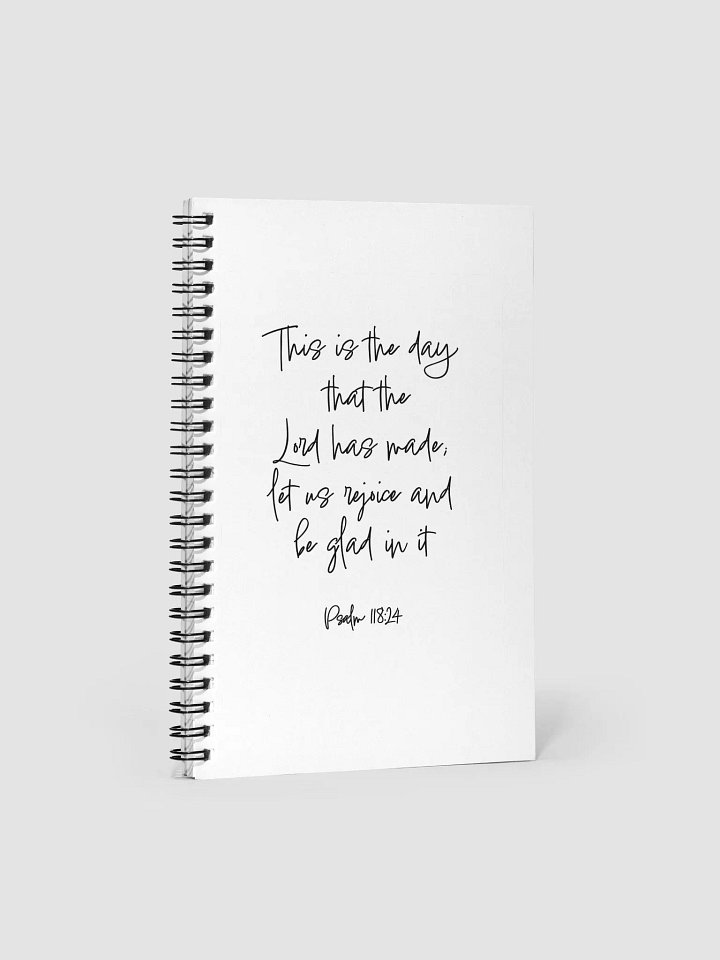 This is the day
that the
Lord has made;
let us rejoice and
be glad in it
Psalm 118:24